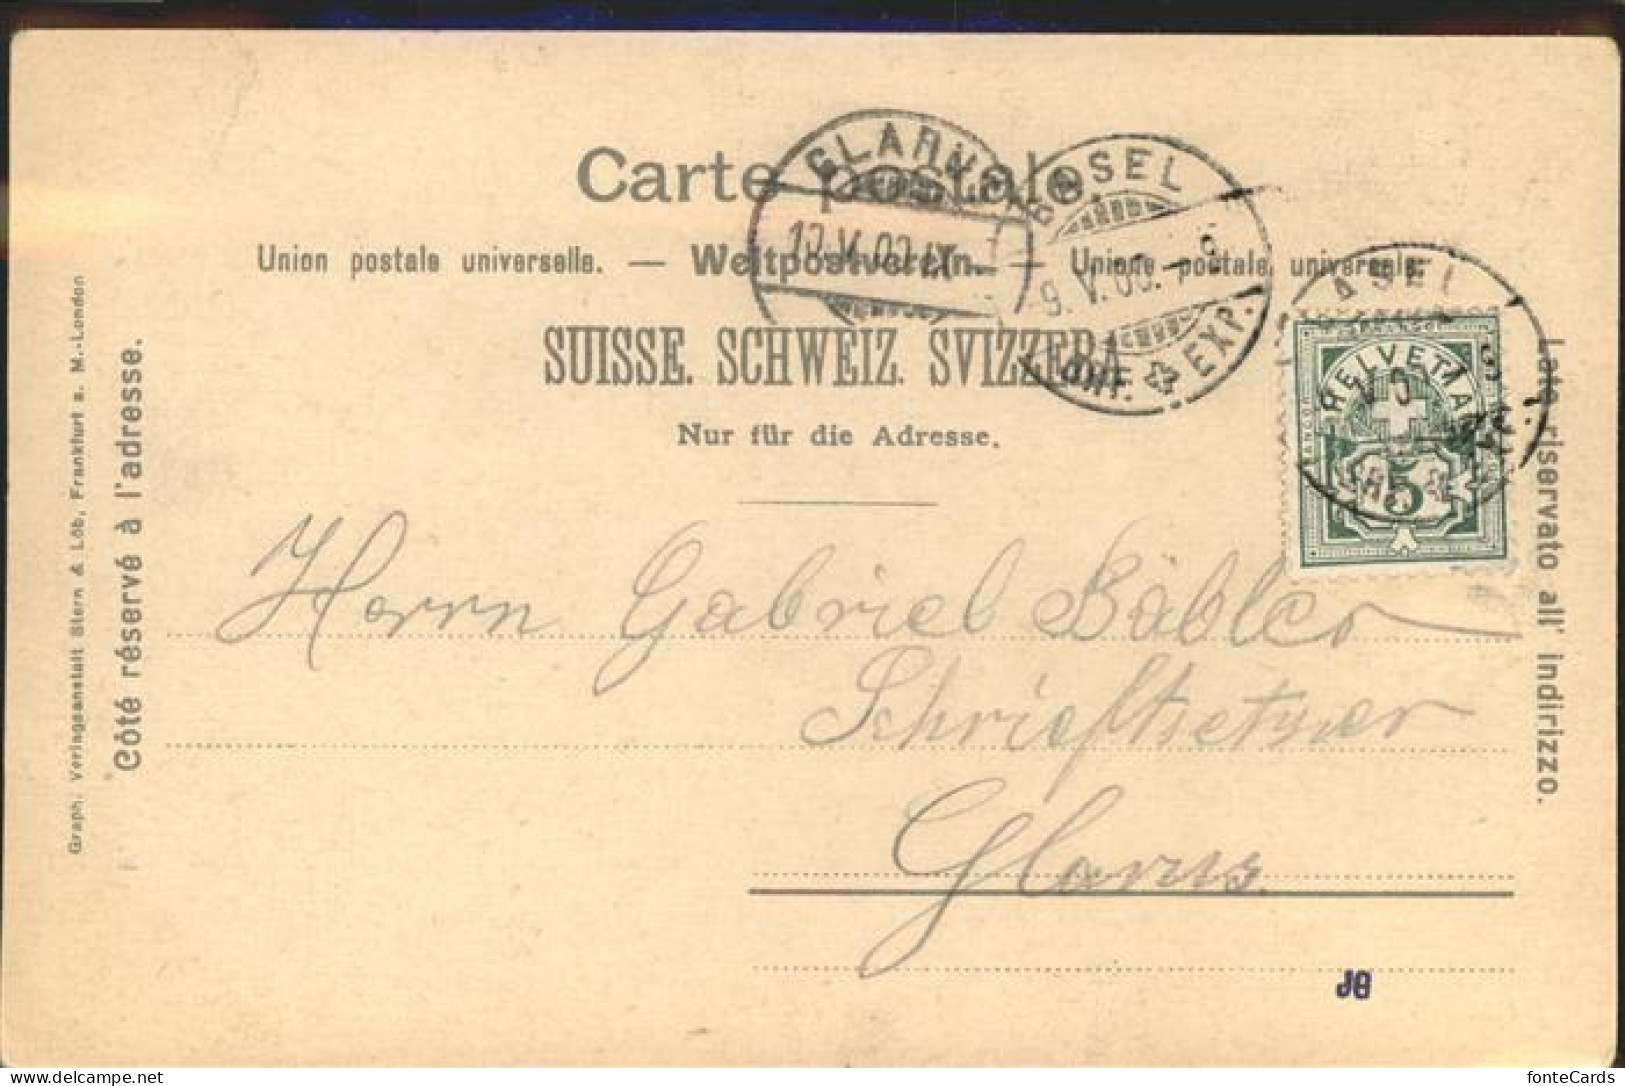 Carte postale.
Union postale universelle. — Weltpostverein. — Unione postale universale.
SUISSE. SCHWEIZ. SVIZZERA.
Nur für die Adresse.
GLARUS
BASEL
BRF. EXP.
HELVETIA
FRANCO
5
Herrn Gabriel Bäbler
Schriftsetzer
Glarus.
Côté réservé à l'adresse.
Graph. Verlagsanstalt Stern & Löb, Frankfurt a. M.-London
Lato riservato all' indirizzo.
fonteCards